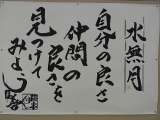 水無月
自分の良さ
仲間の
良さを
見つけて
みよう